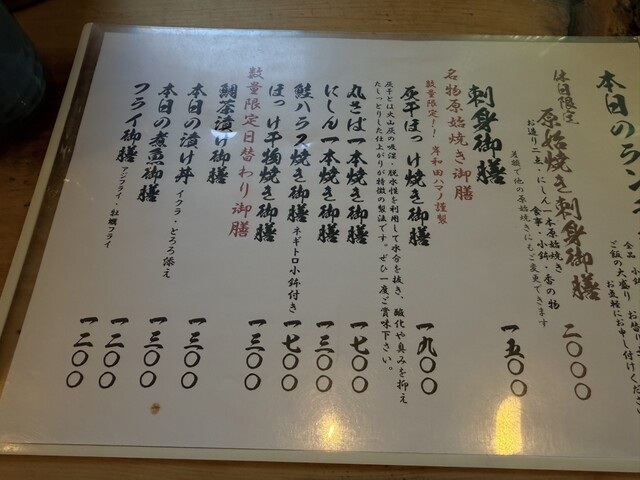 本日のラン
全品 小鉢
ご飯の大盛り お
お気軽にお申し付けくださ
休日限定
原始焼き刺身御膳 二〇〇〇
お造り二点・にしん一本原始焼き
食事・小鉢・香の物
差額で他の原始焼きにもご変更できます
刺身御膳 一五〇〇
名物原始焼き御膳
数量限定!! 岸和田ハマノ謹製
灰干ほっけ焼き御膳 一九〇〇
灰干とは火山灰の吸湿・脱水性を利用して水分を抜き、酸化や臭みを抑え
たしっとりした仕上がりが特徴の製法です。ぜひ一度ご賞味下さい。
丸さば一本焼き御膳 一七〇〇
にしん一本焼き御膳 一三〇〇
鮭ハラス焼き御膳 ネギトロ小鉢付き 一七〇〇
ほっけ干物焼き御膳 一三〇〇
数量限定日替わり御膳
鯛茶漬け御膳 一三〇〇
本日の漬け丼 イクラ・とろろ添え 一三〇〇
本日の煮魚御膳 一二〇〇
フライ御膳 アジフライ・牡蠣フライ 一二〇〇